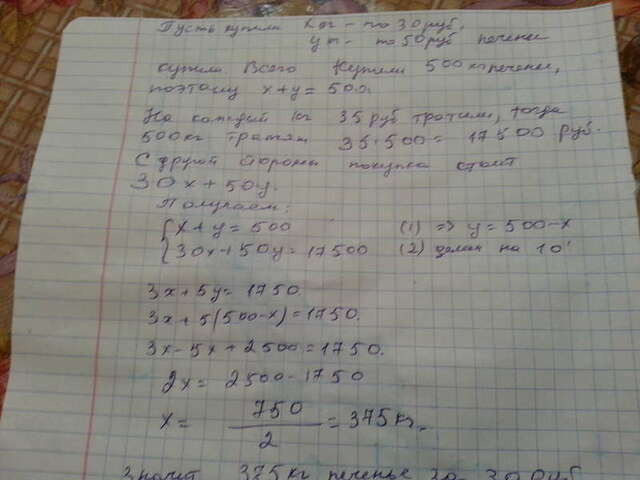 Пусть купили x кг - по 30 руб,
y кг - по 50 руб печенье
купили. Всего купили 500 кг печенье,
поэтому x+y= 500.
На каждый кг 35 руб тратили, тогда
500 кг тратят 35·500= 17500 руб.
С другой стороны покупка стоит
30x+50y.
Получаем:
{x+y=500 (1) => y=500-x
{30x+50y=17500 (2) делим на 10!
3x+5y=1750.
3x+5(500-x)=1750.
3x-5x+2500=1750.
2x= 2500-1750
x= 750/2 =375 кг.
Значит 375 кг печенье за 30 руб